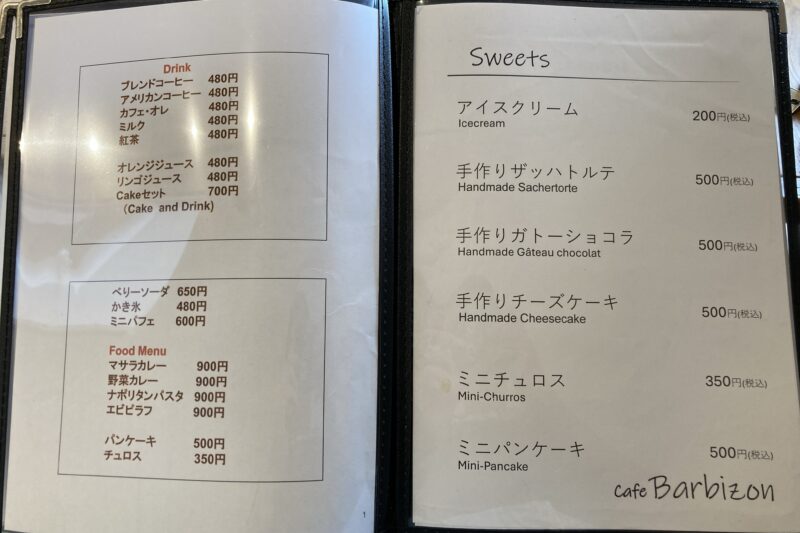 Drink
ブレンドコーヒー 480円
アメリカンコーヒー 480円
カフェ・オレ 480円
ミルク 480円
紅茶 480円
オレンジジュース 480円
リンゴジュース 480円
Cakeセット 700円
(Cake and Drink)
ベリーソーダ 650円
かき氷 480円
ミニパフェ 600円
Food Menu
マサラカレー 900円
野菜カレー 900円
ナポリタンパスタ 900円
エビピラフ 900円
パンケーキ 500円
チュロス 350円
1
Sweets
アイスクリーム 200円(税込)
Icecream
手作りザッハトルテ 500円(税込)
Handmade Sachertorte
手作りガトーショコラ 500円(税込)
Handmade Gâteau chocolat
手作りチーズケーキ 500円(税込)
Handmade Cheesecake
ミニチュロス 350円(税込)
Mini-Churros
ミニパンケーキ 500円(税込)
Mini-Pancake
Cafe Barbizon